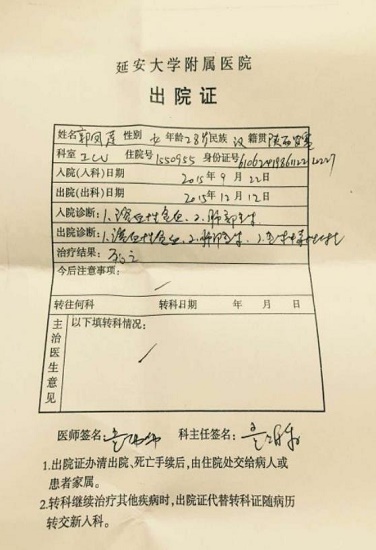 延安大学附属医院
出院证
姓名 郭凤莲 性别 女 年龄 28岁 民族 汉 籍贯 陕西安塞
科室 ICU 住院号 1550955 身份证号
入院(入科)日期 2015年9月22日
出院(出科)日期 2015年12月12日
入院诊断:1. 溶血性贫血 2. 肺部
出院诊断:1. 溶血性贫血 2. 肺部
治疗结果:
今后注意事项:
转往何科 转科日期 年 月 日
主治医生意见
以下填转科情况:
医师签名: 科主任签名:
1.出院证办清出院、死亡手续后,由住院处交给病人或
患者家属。
2.转科继续治疗其他疾病时,出院证代替转科证随病历
转交新入科。